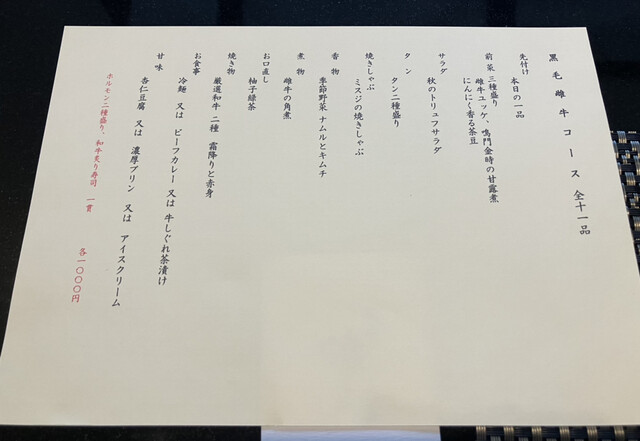 黒毛雌牛コース 全十一品
先付け
本日の一品
前菜 三種盛り
雌牛ユッケ、鳴門金時の甘露煮
にんにく香る茶豆
サラダ
秋のトリュフサラダ
タン
タン二種盛り
焼きしゃぶ
ミスジの焼きしゃぶ
香物
季節野菜 ナムルとキムチ
煮物
雌牛の角煮
お口直し
柚子緑茶
焼き物
厳選和牛 二種 霜降りと赤身
お食事
冷麺 又は ビーフカレー 又は 牛しぐれ茶漬け
甘味
杏仁豆腐 又は 濃厚プリン 又は アイスクリーム
ホルモン二種盛り、和牛炙り寿司 一貫 各一〇〇〇円